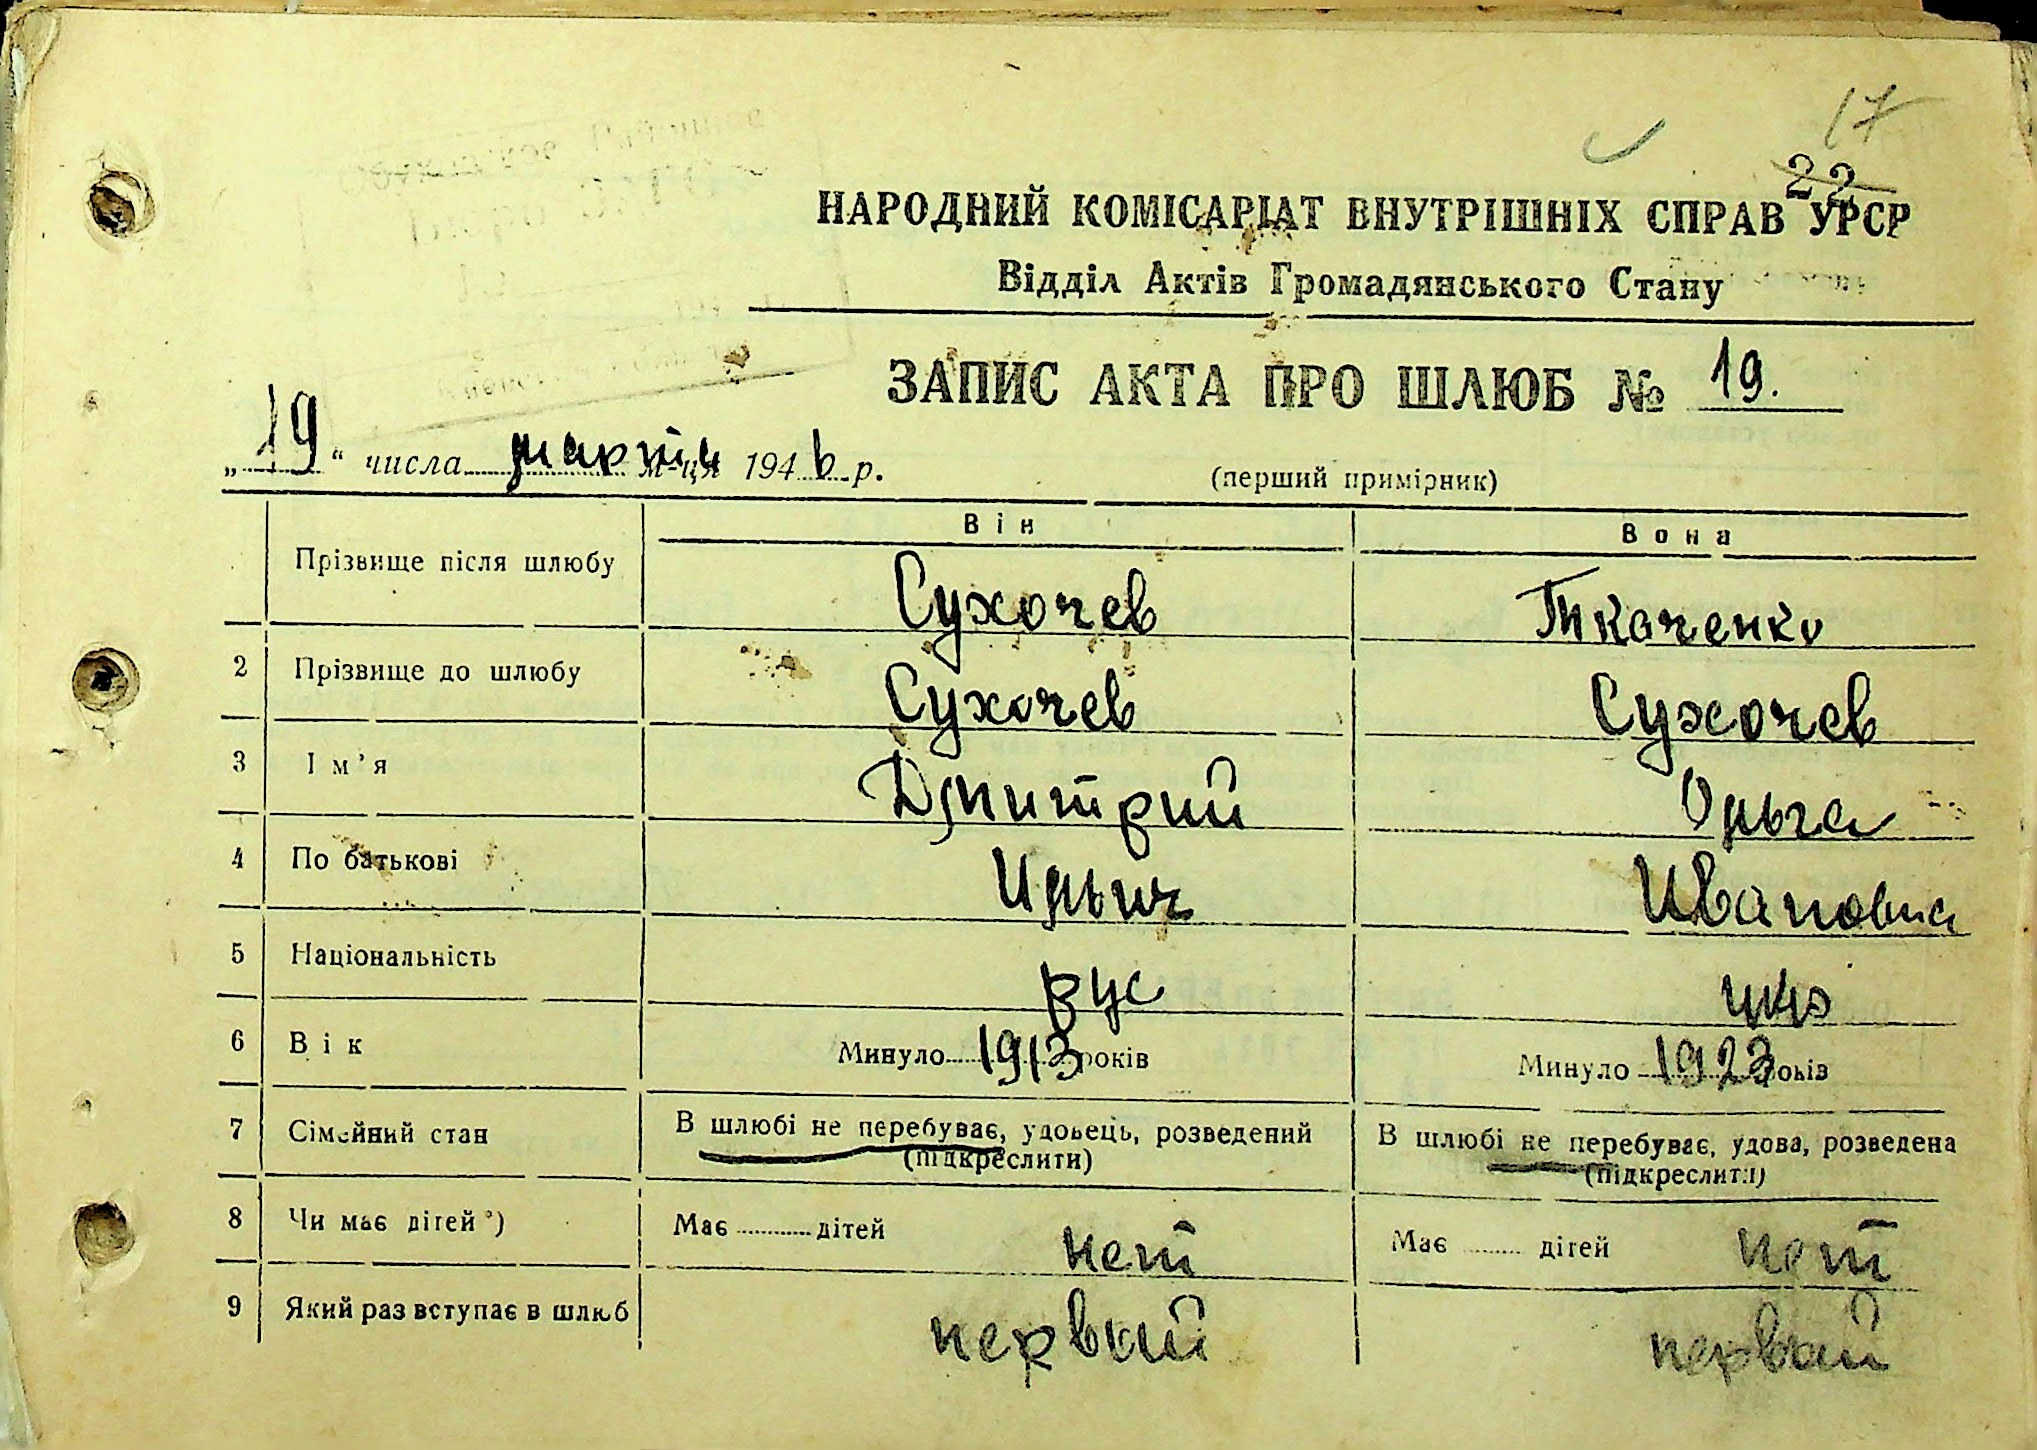 17
22
НАРОДНИЙ КОМІСАРІАТ ВНУТРІШНІХ СПРАВ УРСР
Відділ Актів Громадянського Стану
ЗАПИС АКТА ПРО ШЛЮБ № 19.
„19“ числа марта м-ця 1946 р.
(перший примірник)
Він Вона
Прізвище після шлюбу Сухочев Ткаченко
2 Прізвище до шлюбу Сухочев Сухочев
3 Ім’я Дмитрий Ольга
4 По батькові Ильич Ивановна
5 Національність рус укр
6 Вік Минуло 1913 років Минуло 1923 років
7 Сімейний стан В шлюбі не перебуває, удовець, розведений В шлюбі не перебуває, удова, розведена
(підкреслити) (підкреслити)
8 Чи має дітей*) Має дітей нет Має дітей нет
9 Який раз вступає в шлюб первый первый